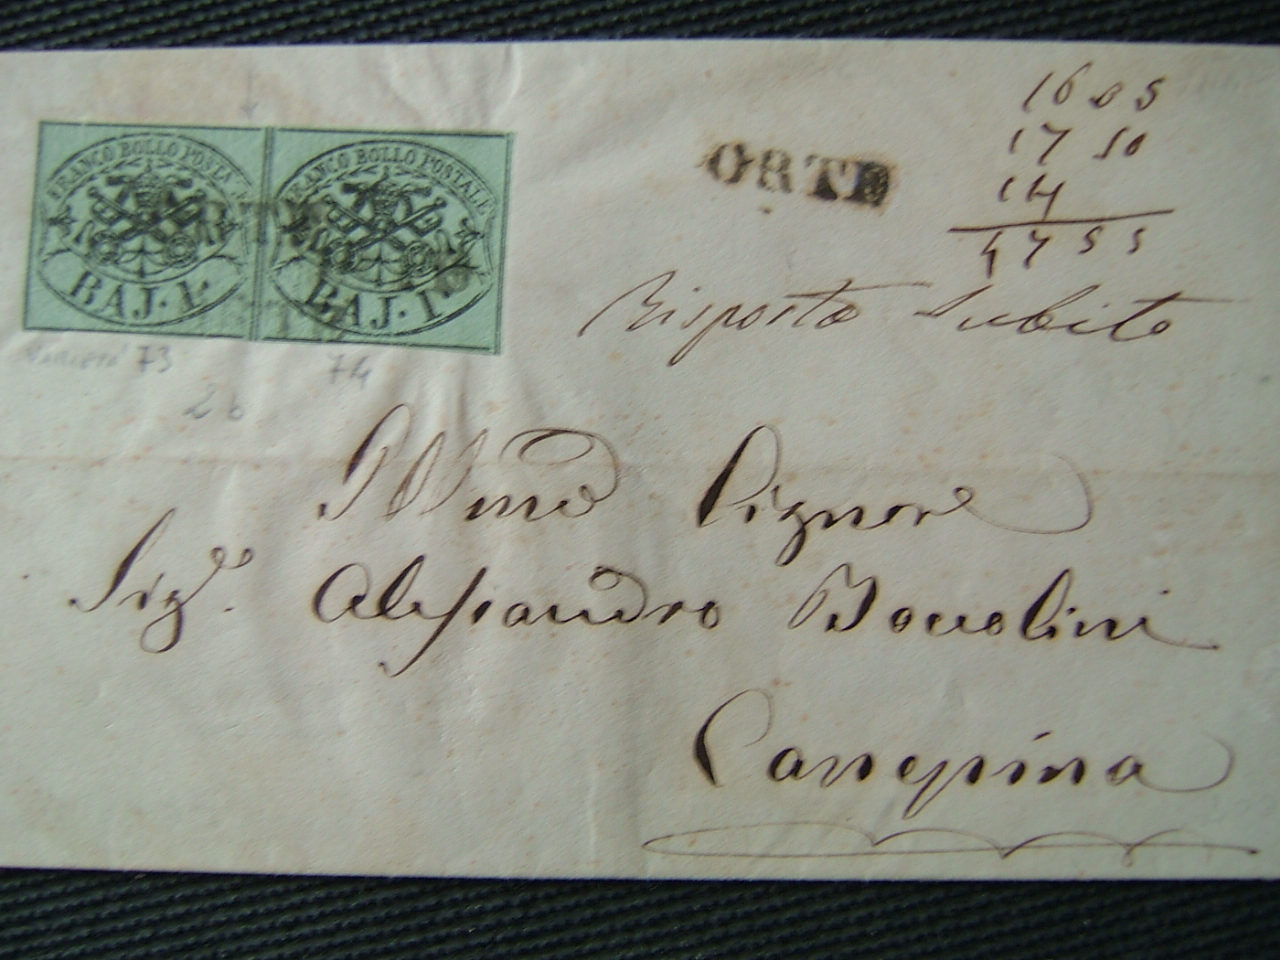 FRANCO BOLLO POSTALE
BAJ. 1.
FRANCO BOLLO POSTALE
BAJ. 1.
ORTE
16 05
17 50
14
47 55
Risposta Subito
73
74
2b
Illmo Signore
Sigr. Alessandro Boccolini
Canepina